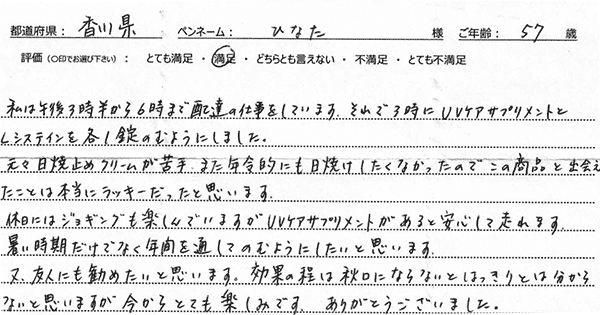 都道府県： 香川県 ペンネーム： ひなた 様 ご年齢： 57 歳
評価（○印でお選び下さい）： とても満足 ・ 満足 ・ どちらとも言えない ・ 不満足 ・ とても不満足
私は午後3時半から6時まで配達の仕事をしています。それで3時にUVケアサプリメントと
Lシステインを各1錠のむようにしました。
元々日焼止めクリームが苦手、また年令的にも日焼けしたくなかったのでこの商品と出会え
たことは本当にラッキーだったと思います。
休日にはジョギングも楽しんでいますがUVケアサプリメントがあると安心して走れます。
暑い時期だけでなく年間を通してのむようにしたいと思います。
又、友人にも勧めたいと思います。効果の程は秋口にならないとはっきりとは分から
ないと思いますが今からとても楽しみです。ありがとうございました。